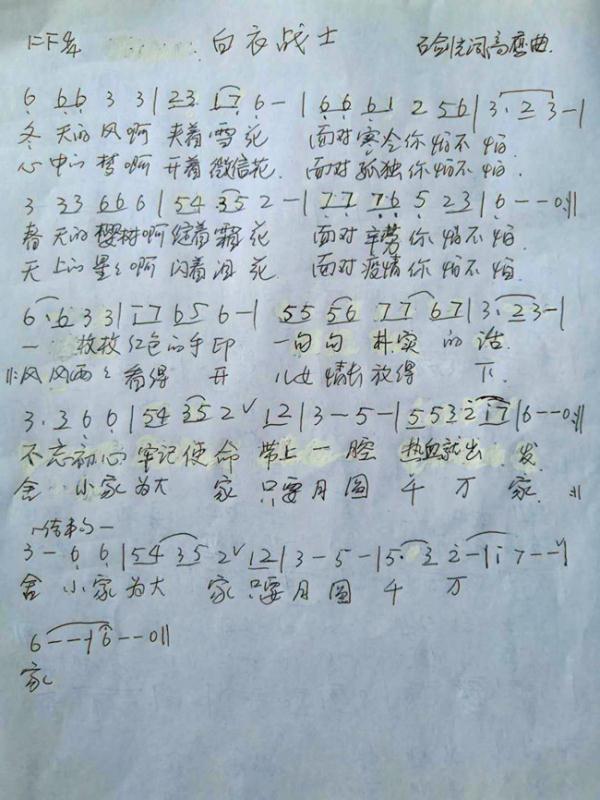 1=F 4/4 白衣战士 词高 曲
6 66 3 3|23 17 6-|66 61 2 56|3·23-|
冬天的风啊 夹着雪花 面对寒冷你怕不怕
心中的梦啊 开着微信花 面对孤独你怕不怕
3 33 666|54 35 2-|77 76 5 23|6--0:||
春天的樱树啊 绽着霜花 面对辛劳你怕不怕
天上的星星啊 闪着泪花 面对疫情你怕不怕
6·6 33|17 65 6-|55 56 77 67|3·23-|
一枚枚红色的手印 一句句朴实的话
||:风风雨雨看得开 儿女情长放得下
3·3 6 6|54 35 2∨12|3-5-|553217|6--0:||
不忘初心牢记使命 带上一腔热血就出发
舍小家为大家 只要月圆千万家 :||
结束句
3-66|54 35 2∨12|3-5-|5·32-|17--∨|
舍小家为大家 只要月圆千万
6---|6--0||
家